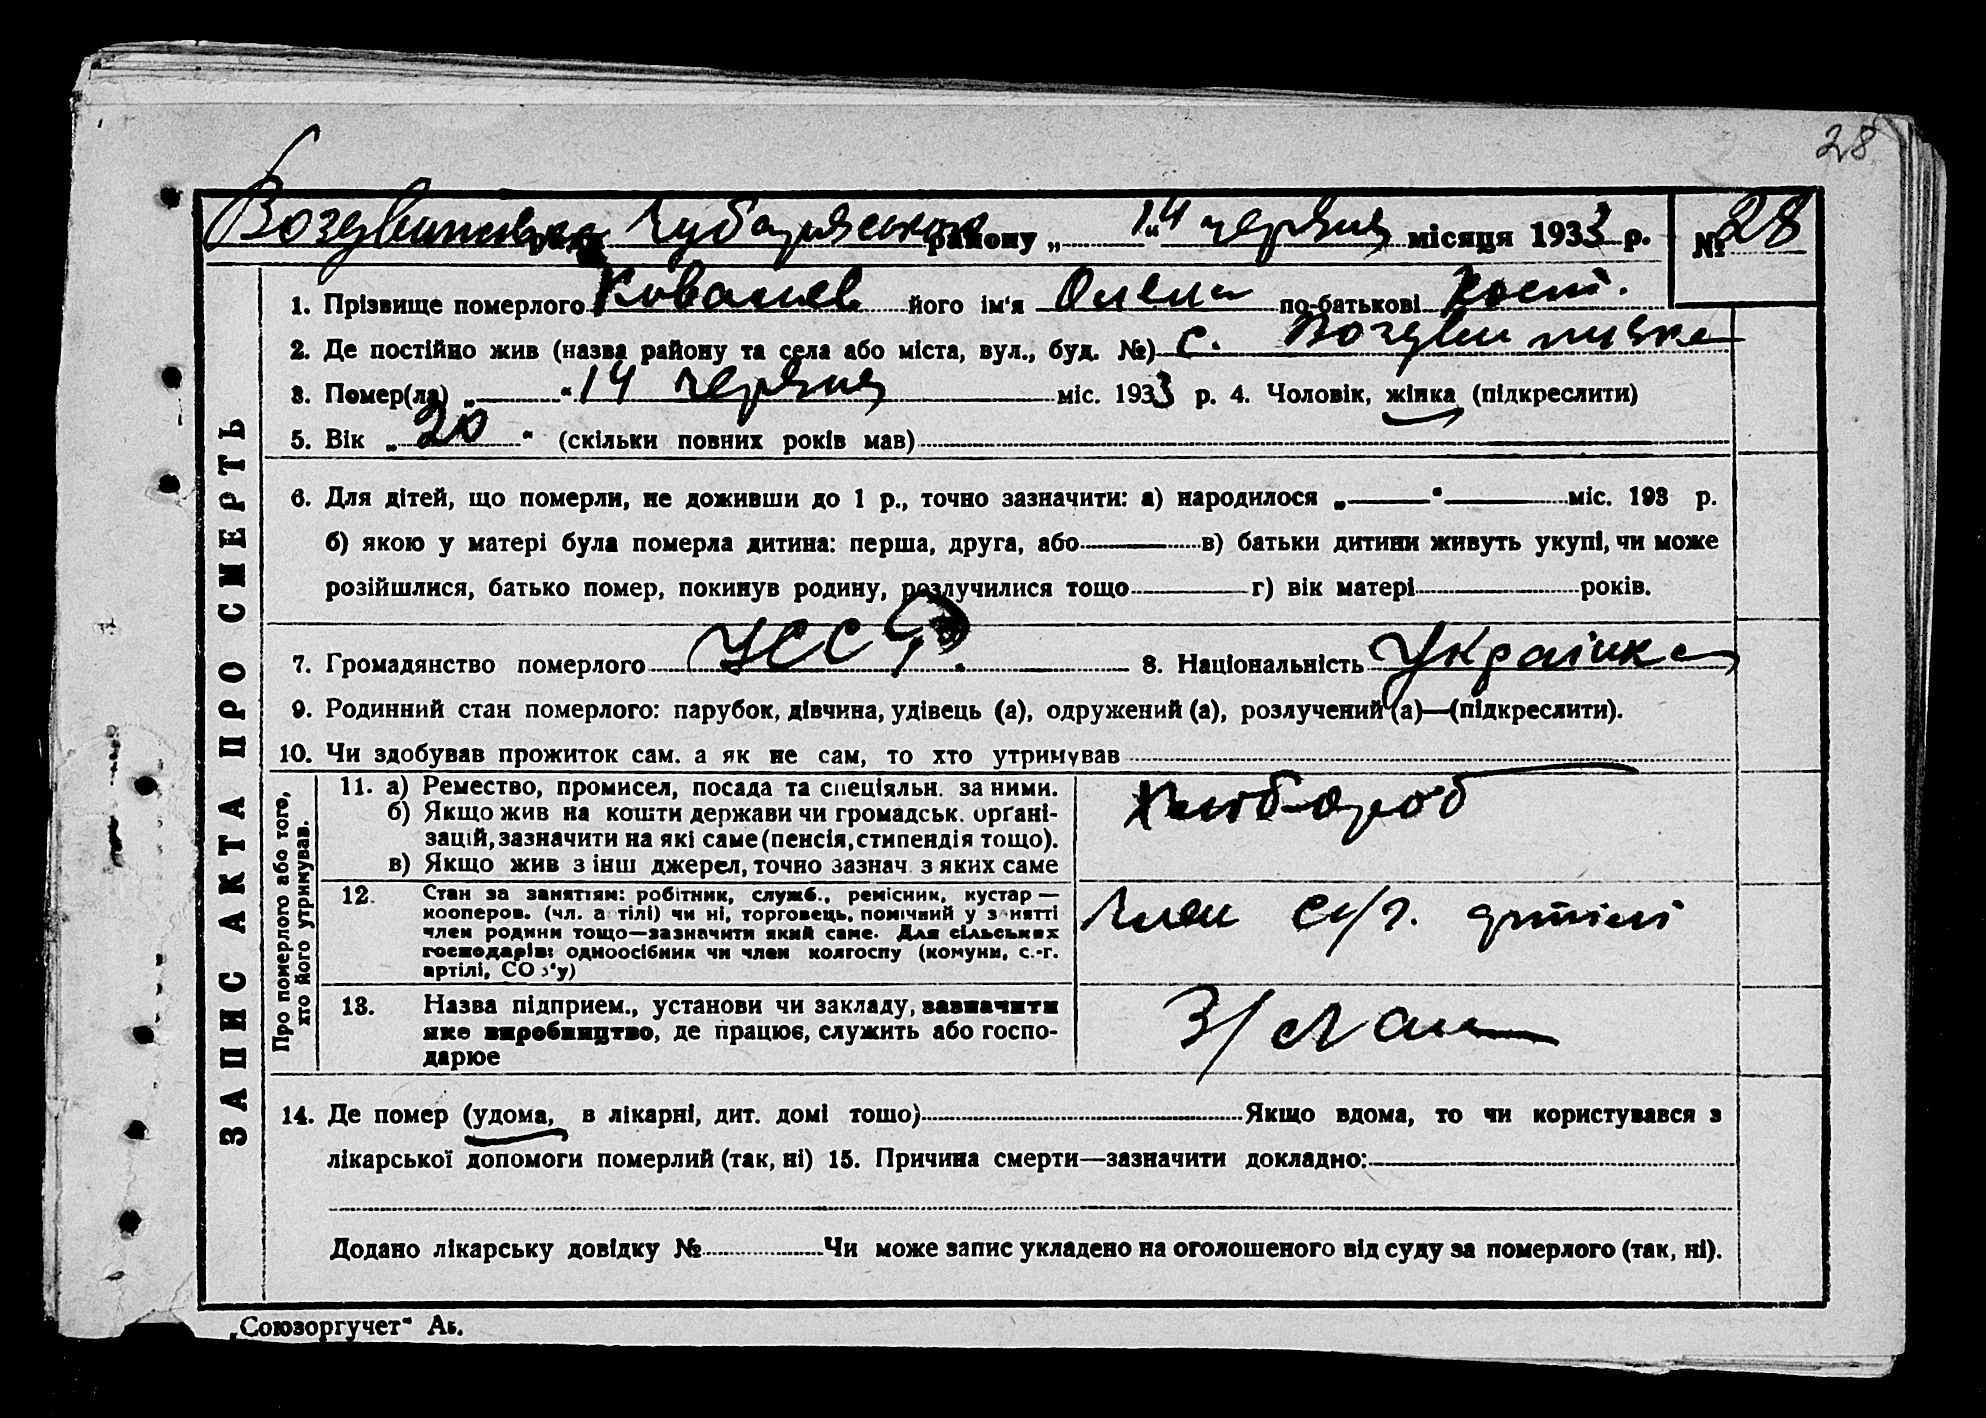 28
Воздвижівка ради Чубарівського району „ 14 “ червня місяця 1933 р. № 28
1. Прізвище померлого Ковалев його ім'я Олена по-батькові Кост.
2. Де постійно жив (назва району та села або міста, вул., буд. №) с. Воздвижівка
3. Помер(ла) „ “ 14 червня міс. 1933 р. 4. Чоловік, жінка (підкреслити)
5. Вік „ 20 “ (скільки повних років мав)
6. Для дітей, що померли, не доживши до 1 р., точно зазначити: а) народилося „ “ міс. 193 р.
б) якою у матері була померла дитина: перша, друга, або в) батьки дитини живуть укупі, чи може
розійшлися, батько помер, покинув родину, розлучилися тощо г) вік матері років.
7. Громадянство померлого УССР. 8. Національність Українка
9. Родинний стан померлого: парубок, дівчина, удівець (а), одружений (а), розлучений (а)—(підкреслити).
10. Чи здобував прожиток сам. а як не сам, то хто утримував
ЗАПИС АКТА ПРО СМЕРТЬ
Про померлого або того,
хто його утримував.
11. а) Ремество, промисел, посада та спеціяльн. за ними.
б) Якщо жив на кошти держави чи громадськ. орґані-
зацій, зазначити на які саме (пенсія, стипендія тощо).
в) Якщо жив з інш джерел, точно зазнач. з яких саме
Хлібороб
12. Стан за занятіям: робітник, служб., ремісник, кустар —
кооперов. (чл. артілі) чи ні, торговець, помічний у занятті
член родини тощо—зазначити який саме. Для сільських
господарів: одноосібник чи член колгоспу (комуни, с.-г.
артілі, СОЗ'у)
Член с/г. артілі
13. Назва підприєм., установи чи закладу, зазначити
яке виробництво, де працює, служить або госпо-
дарює
14. Де помер (удома, в лікарні, дит. домі тошо) Якщо вдома, то чи користувався з
лікарської допомоги померлий (так, ні) 15. Причина смерти—зазначити докладно:
Додано лікарську довідку № Чи може запис укладено на оголошеного від суду за померлого (так, ні).
„Союзоргучет“